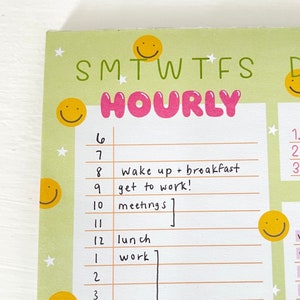 SMTWTFS
HOURLY
6
7
8 wake up + breakfast
9 get to work!
10 meetings
11
12 lunch
1 work
2
3
1.
2
3